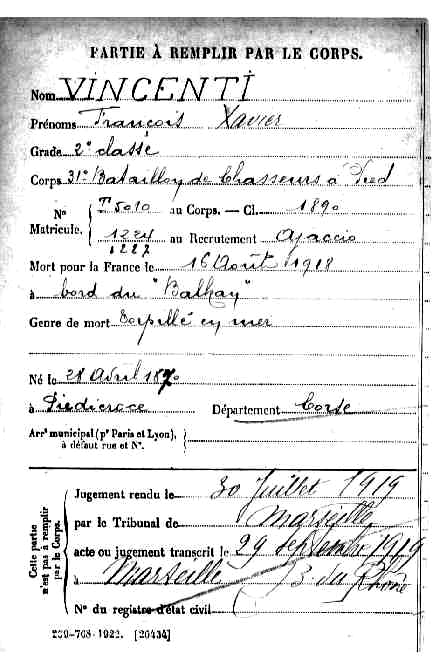 PARTIE À REMPLIR PAR LE CORPS.
Nom VINCENTI
Prénoms François Xavier
Grade 2e classe
Corps 31e Bataillon de Chasseurs à Pied
No Matricule. { T 5010 au Corps. — Cl. 1890
1224 au Recrutement Ajaccio
1227
Mort pour la France le 16 Août 1918
à bord du "Balkay"
Genre de mort Torpillé en mer
Né le 28 Avril 1870
à Piedicroce Département Corse
Arrt municipal (pr Paris et Lyon), à défaut rue et No.
Cette partie n'est pas à remplir par le Corps.
Jugement rendu le 30 Juillet 1919
par le Tribunal de Marseille
acte ou jugement transcrit le 29 septembre 1919
à Marseille B. du Rhône
No du registre d'état civil
[20434]